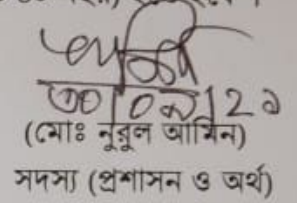 ৩০/০৯/২১
(মোঃ নুরুল আমিন)
সদস্য (প্রশাসন ও অর্থ)